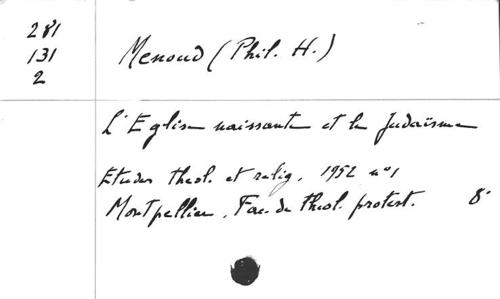 281
131
2
Menoud (Phil. H.)
L'Eglise naissante et le Judaïsme
Etudes theol. et relig. 1952 n°1
Montpellier, Fac. de theol. protest. 8°